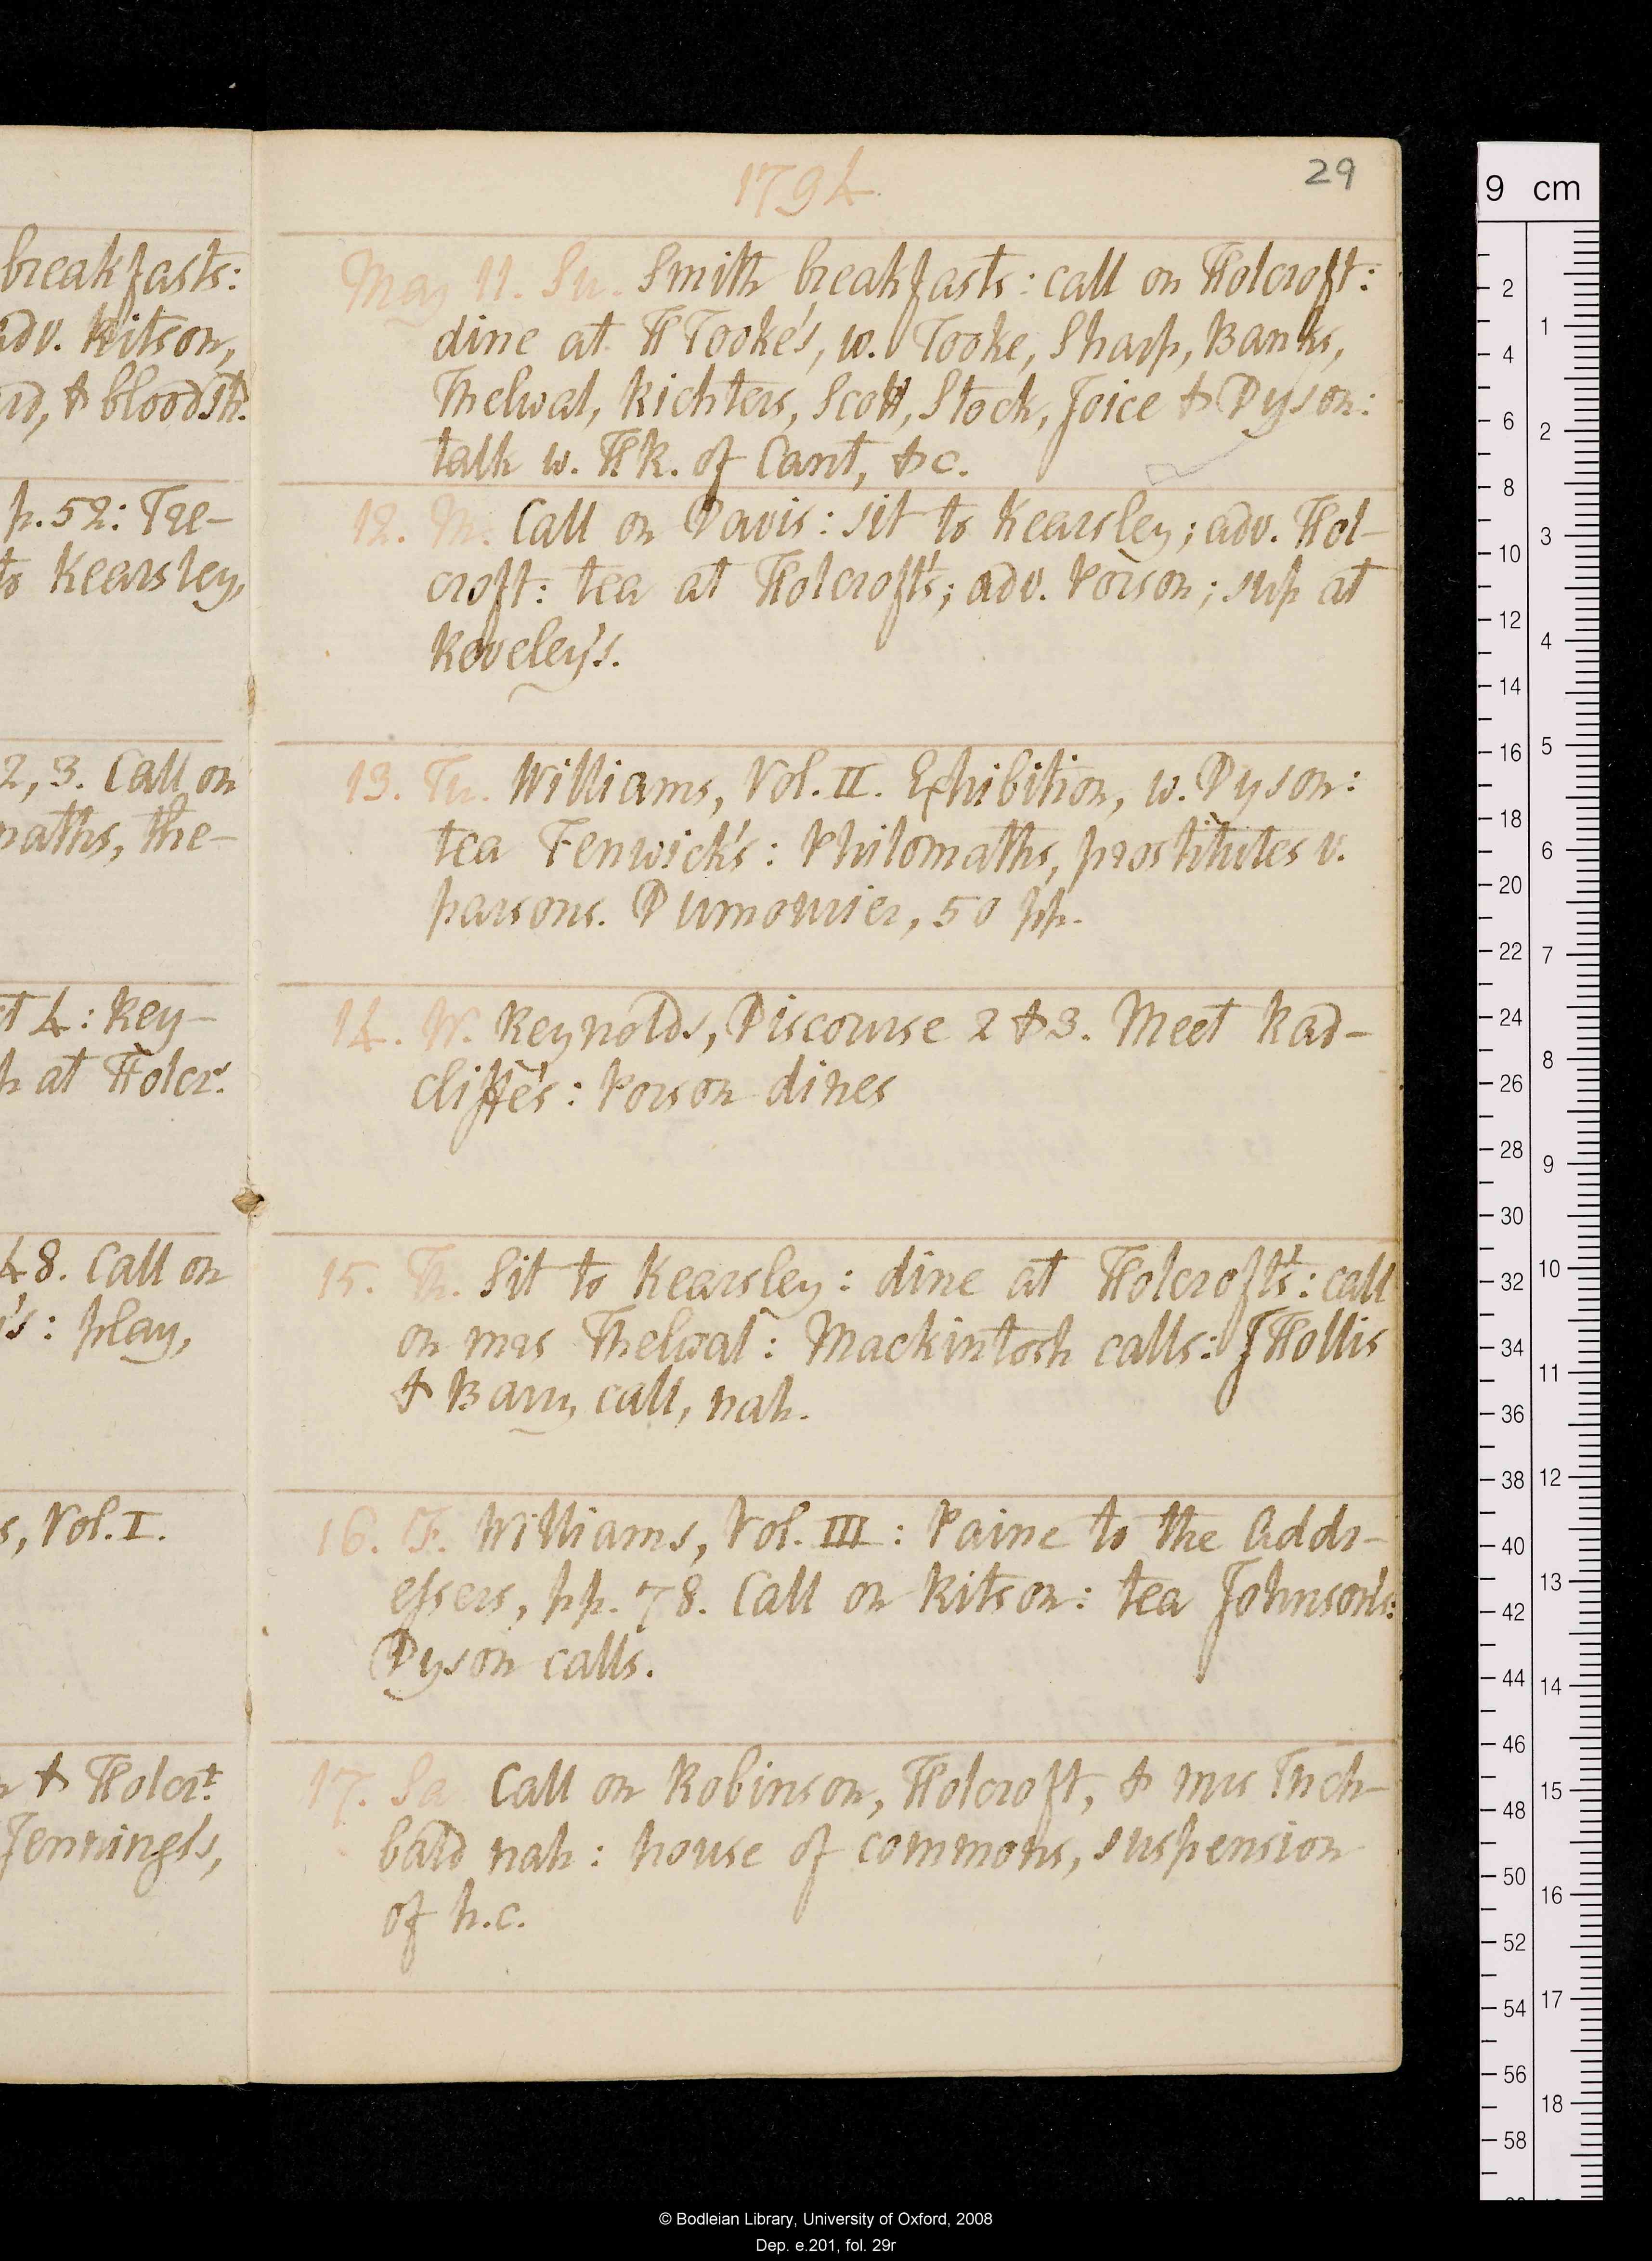 breakfasts:
adv. Ritson,
rd, & bloodsh.
p. 52: Tre-
to Kearsley,
2, 3. Call on
maths, the-
ct 4: Rey-
p at Holcr.
48. Call on
's: play,
s, Vol. I.
n & Holcrt.
Jennings's,
1794
29
May 11. Su. Smith breakfasts: call on Holcroft:
dine at H Tooke's, w. Tooke, Sharp, Banks,
Thelwal, Richters, Scott, Stock, Joice & Dyson:
talk w. H R. of Cant, &c.
12. M. Call on Davis: sit to Kearsley; adv. Hol-
croft: tea at Holcroft's; adv. Porson; sup at
Reveley's.
13. Tu. Williams, Vol. II. Exhibition, w. Dyson:
tea Fenwick's: Philomaths, prostitutes v.
parsons. Dumourier, 50 pp.
14. W. Reynolds, Discourse 2 & 3. Meet Rad-
cliffe's: Porson dines
15. Th. Sit to Kearsley: dine at Holcroft's: call
on mrs Thelwal: Mackintosh calls: J Hollis
& Barry call, nah.
16. F. Williams, Vol. III: Paine to the Addr-
essers, pp. 78. Call on Ritson: tea Johnson's:
Dyson calls.
17. Sa. Call on Robinson, Holcroft, & mrs Inch-
bald nah: house of commons, suspension
of h.c.
9 cm
2
4
6
8
10
12
14
16
18
20
22
24
26
28
30
32
34
36
38
40
42
44
46
48
50
52
54
56
58
1
2
3
4
5
6
7
8
9
10
11
12
13
14
15
16
17
18
© Bodleian Library, University of Oxford, 2008
Dep. e.201, fol. 29r